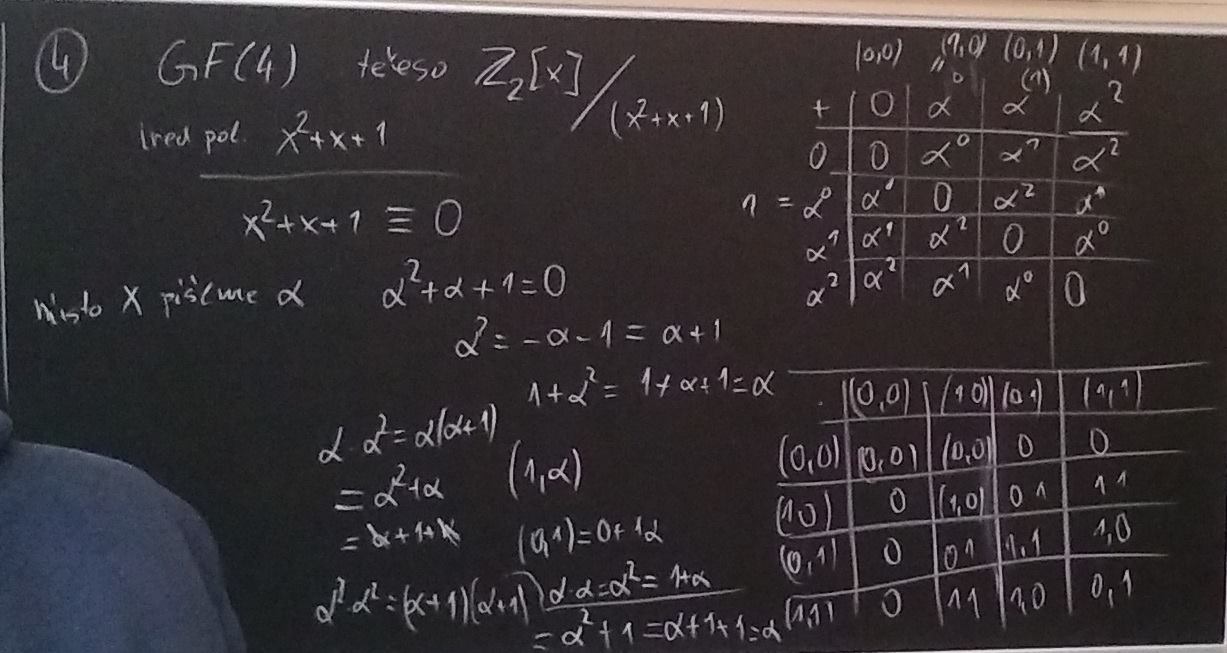 ④ GF(4) těleso Z₂[x]/(x²+x+1)
Ired pol. x²+x+1
x²+x+1 ≡ 0
místo X píšeme α α²+α+1=0
α²=-α-1=α+1
1+α²=1+α+1=α
α·α²=α(α+1)
=α²+α (1,α)
=α+1+α (0,1)=0+1α
α·α=α²=1+α
α²·α²=(α+1)(α+1)
=α²+1=α+1+1=α
(0,0) (1,0) (0,1) (1,1)
+ 0 α⁰ α⁽¹⁾ α²
0 0 α⁰ α¹ α²
1=α⁰ α⁰ 0 α² α¹
α¹ α¹ α² 0 α⁰
α² α² α¹ α⁰ 0
· (0,0) (1 0) (0 1) (1,1)
(0,0) (0,0) (0,0) 0 0
(1,0) 0 (1,0) 0 1 1 1
(0,1) 0 0 1 1,1 1,0
(1,1) 0 1 1 1,0 0,1